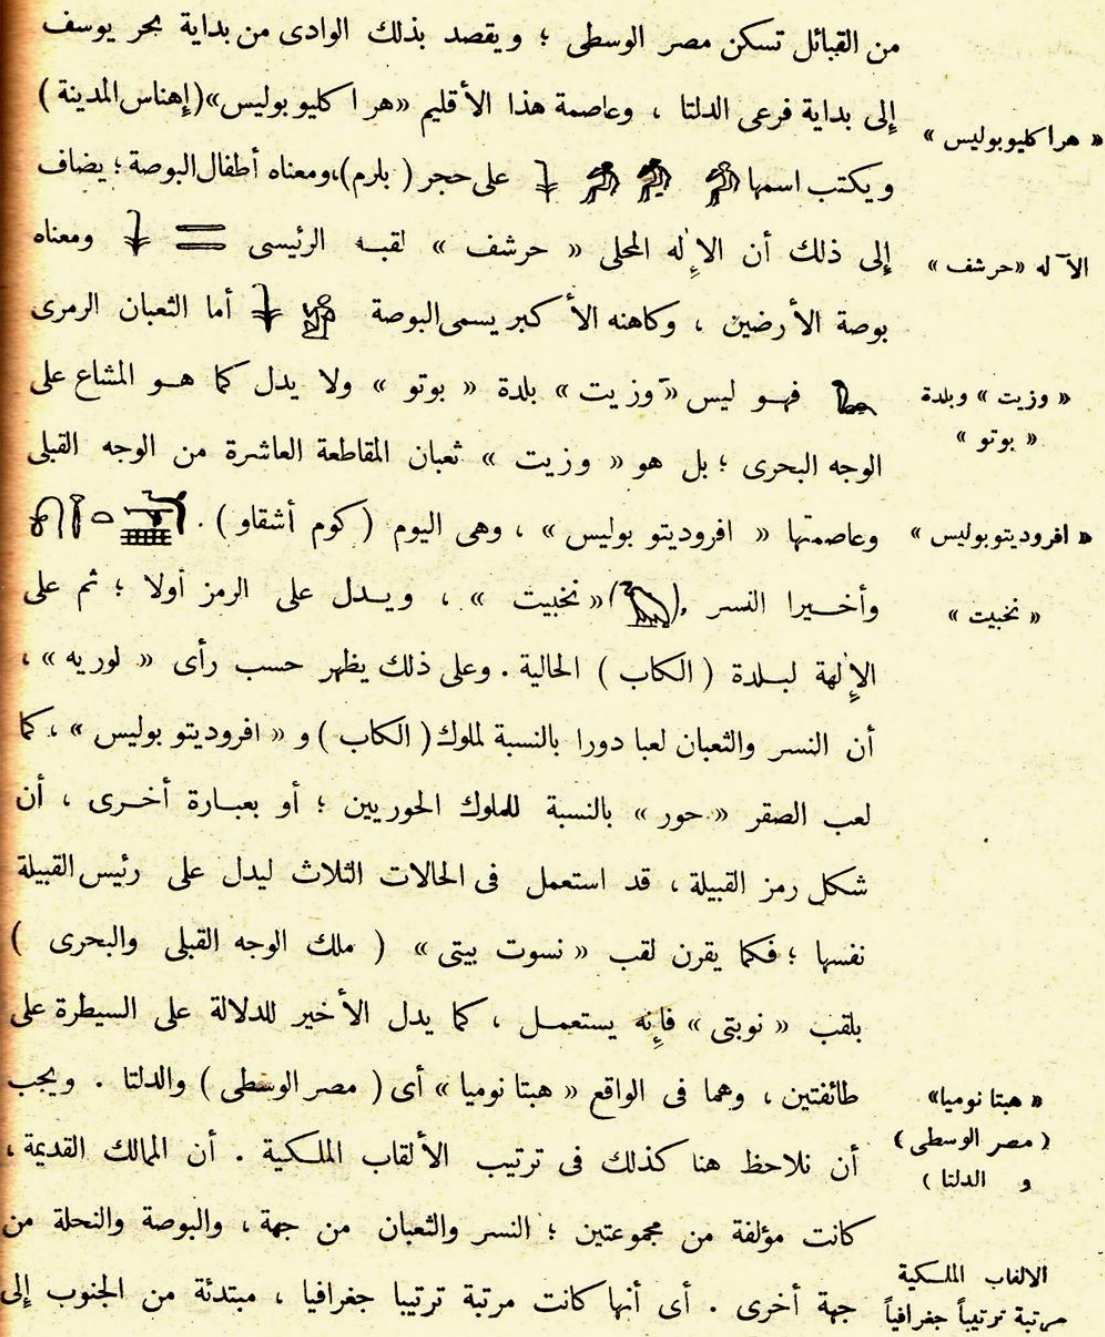 من القبائل تسكن مصر الوسطى ؛ ويقصد بذلك الوادى من بداية بحر يوسف
إلى بداية فرعى الدلتا ، وعاصمة هذا الأقليم «هراكليوبوليس»(إهناس المدينة)
« هراكليوبوليس »
ويكتب اسمها على حجر ( بلرم)،ومعناه أطفال البوصة ؛ يضاف
إلى ذلك أن الإله المحلى « حرشف » لقبه الرئيسى ومعناه
الآله «حرشف »
بوصة الأرضين ، وكاهنه الأكبر يسمى البوصة أما الثعبان الرمزى
فهو ليس «وزيت » بلدة « بوتو » ولا يدل كما هو المشاع على
« وزيت » وبلدة
« بوتو »
الوجه البحرى ؛ بل هو « وزيت » ثعبان المقاطعة العاشرة من الوجه القبلى
وعاصمتها « افروديتو بوليس » ، وهى اليوم ( كوم أشقاو ) .
« افروديتوبوليس »
وأخيرا النسر ( ) « نخبيت » ، ويدل على الرمز أولا ؛ ثم على
« نخبيت »
الإلهة لبلدة ( الكاب ) الحالية . وعلى ذلك يظهر حسب رأى « لوريه » ،
أن النسر والثعبان لعبا دورا بالنسبة لملوك ( الكاب ) و « افروديتو بوليس » ، كما
لعب الصقر « حور » بالنسبة للملوك الحوريين ؛ أو بعبارة أخرى ، أن
شكل رمز القبيلة ، قد استعمل فى الحالات الثلاث ليدل على رئيس القبيلة
نفسها ؛ فكما يقرن لقب « نسوت بيتى » ( ملك الوجه القبلى والبحرى )
بلقب « نوبتى » فإنه يستعمل ، كما يدل الأخير للدلالة على السيطرة على
طائفتين ، وهما فى الواقع « هبتا نوميا » أى ( مصر الوسطى ) والدلتا . ويجب
« هبتا نوميا»
( مصر الوسطى )
و الدلتا )
أن نلاحظ هنا كذلك فى ترتيب الألقاب الملكية . أن الممالك القديمة ،
كانت مؤلفة من مجموعتين ؛ النسر والثعبان من جهة ، والبوصة والنحلة من
جهة أخرى . أى أنها كانت مرتبة ترتيبا جغرافيا ، مبتدئة من الجنوب إلى
الالقاب الملكية
مرتبة ترتيباً جغرافياً